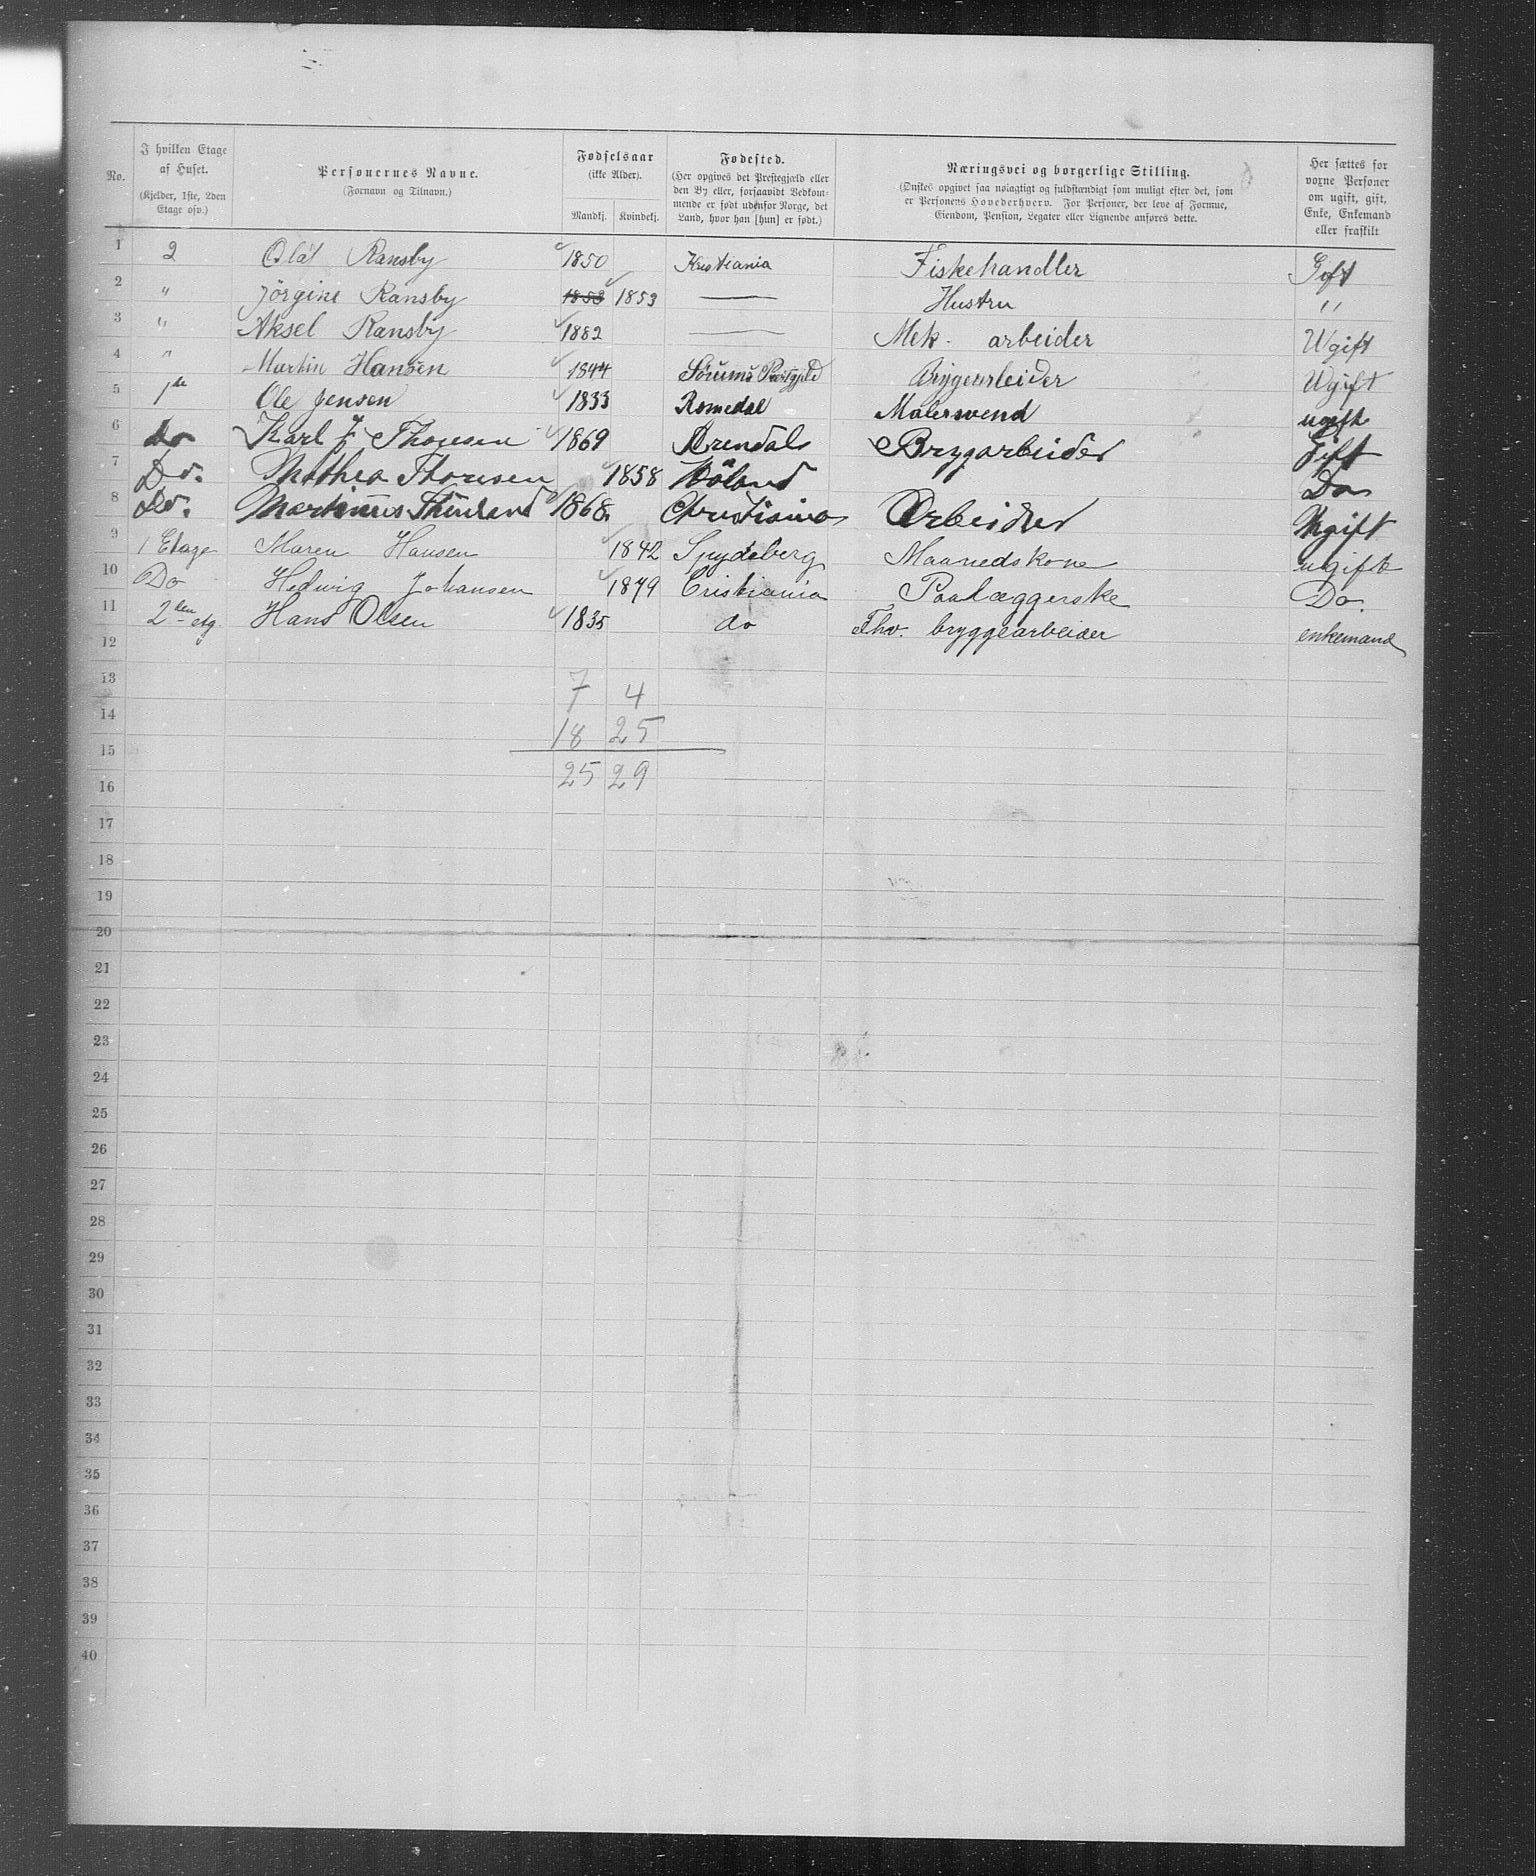 No. | I hvilken Etage af Huset. (Kjelder, 1ste, 2den Etage osv.) | Personernes Navne. (Fornavn og Tilnavn.) | Fødselsaar (ikke Alder). Mandkj. | Kvindekj. | Fødested. (Her opgives det Prestegjæld eller den By eller, forsaavidt Vedkommende er født udenfor Norge, det Land, hvor han [hun] er født.) | Næringsvei og borgerlige Stilling. (Ønskes opgivet saa nøiagtigt og fuldstændigt som muligt efter det, som er Personens Hovederhverv. For Personer, der leve af Formue, Eiendom, Pension, Legater eller Lignende anføres dette. | Her sættes for voxne Personer om ugift, gift, Enke, Enkemand eller fraskilt
1 2 Olaf Ransby 1850 Kristiania Fiskehandler Gift
2 " Jörgine Ransby 1853 1853 — Hustru "
3 " Aksel Ransby 1882 — Mek. arbeider Ugift
4 " Martin Hansen 1844 Sörums Præstgjeld Bryggearbeider Ugift
5 1ste Ole Jensen 1833 Romedal Malersvend ugift
6 do Karl J. Thoresen 1869 Arendal Bryggarbeider Gift
7 Do. Mathea Thoresen 1858 Höland Do
8 Do. Martinius 1868 Christiania Arbeider Ugift
9 1 Etage Maren Hansen 1842 Spydeberg Maanedskone ugift
10 Do Hedwig Johansen 1879 Cristiania Paalæggerske Do.
11 2den etg. Hans Olsen 1835 do Fhv. bryggearbeider enkemand
12
13 7 4
14 18 25
15
16 25 29
17
18
19
20
21
22
23
24
25
26
27
28
29
30
31
32
33
34
35
36
37
38
39
40